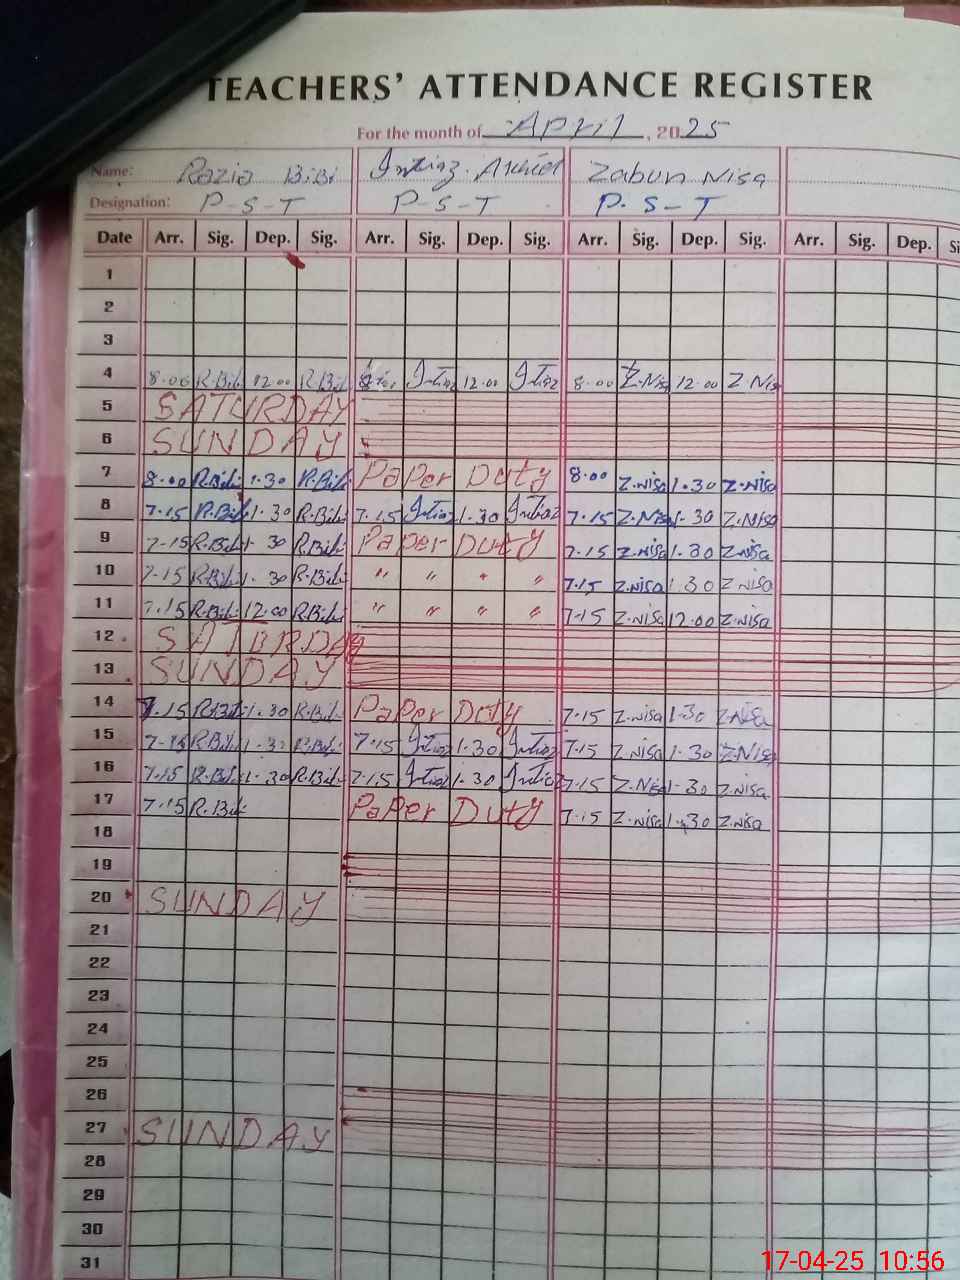 TEACHERS' ATTENDANCE REGISTER
For the month of April, 2025
Name: Razia BiBi Zabun Nisa
Designation: P-S-T P-S-T P.S-T
Date Arr. Sig. Dep. Sig. Arr. Sig. Dep. Sig. Arr. Sig. Dep. Sig. Arr. Sig. Dep.
1
2
3
4 8.00 R.Bibi 12.00 R.Bibi 12.00 8.00 Z.Nisa 12.00 Z.Nisa
5 SATURDAY
6 SUNDAY
7 8.00 R.Bibi 1.30 R.Bibi Paper Duty 8.00 Z.nisa 1.30 Z.nisa
8 7.15 R.Bibi 1.30 R.Bibi 7.15 1.30 7.15 Z.Nisa 1.30 Z.Nisa
9 7-15 R.Bibi 1.30 R.Bibi Paper Duty 7.15 Z.nisa 1.30 Z.nisa
10 7.15 R.Bibi 1.30 R.Bibi " " " " 7.15 Z.nisa 1.30 Z.nisa
11 7.15 R.Bibi 12.00 R.Bibi " " " " 7.15 Z.nisa 12.00 Z.nisa
12 SATBRDAY
13 SUNDAY
14 7.15 R.Bibi 1.30 R.Bibi Paper Duty 7.15 Z.nisa 1.30 Z.Nisa
15 7-15 R.Bibi 1.30 R.Bibi 7.15 1.30 7.15 Z.nisa 1.30 Z.Nisa
16 7.15 R.Bibi 1.30 R.Bibi 7.15 1.30 7.15 Z.Nisa 1.30 Z.nisa
17 7.15 R.Bibi Paper Duty 7.15 Z.nisa 1.30 Z.nisa
18
19
20 SUNDAY
21
22
23
24
25
26
27 SUNDAY
28
29
30
31
17-04-25 10:56